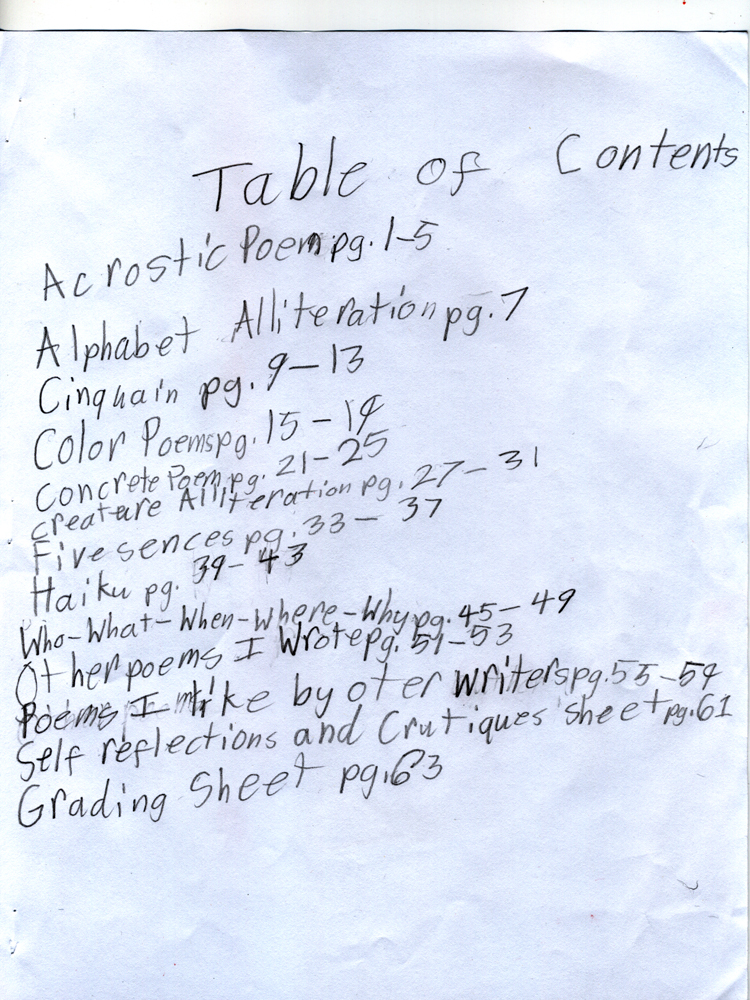 Table of Contents
Acrostic Poem pg. 1-5
Alphabet Alliteration pg. 7
Cinquain pg. 9-13
Color Poems pg. 15-19
Concrete Poem pg. 21-25
Creature Alliteration pg. 27-31
Five sences pg. 33-37
Haiku pg. 39-43
Who-What-When-Where-Why pg. 45-49
Other poems I Wrote pg. 51-53
Poems I like by oter writers pg. 55-59
Self reflections and Crutiques sheet pg. 61
Grading Sheet pg. 63